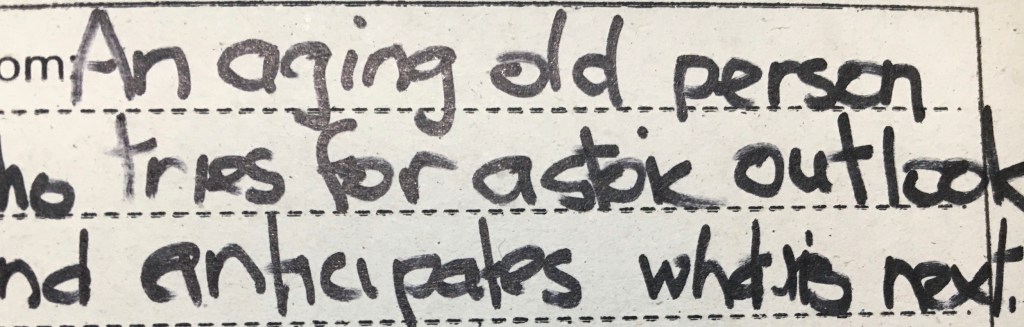 om: An aging old person
ho tries for a stoic outlook
nd anticipates what is next.